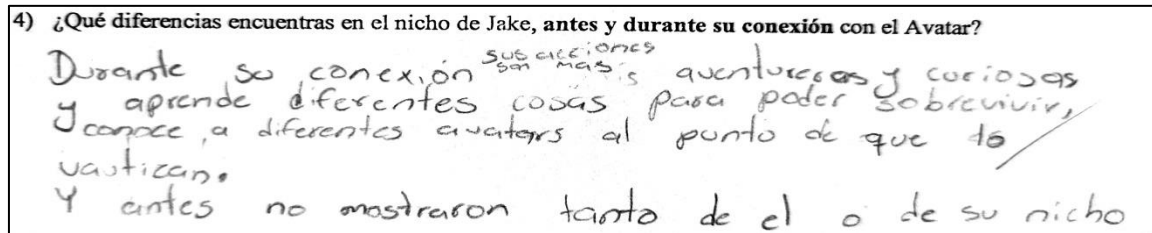 4) ¿Qué diferencias encuentras en el nicho de Jake, antes y durante su conexión con el Avatar?
sus acciones
Durante su conexión son mas s aventureras y curiosas
y aprende diferentes cosas para poder sobrevivir,
y conoce a diferentes avatars al punto de que lo
vautizan.
Y antes no mostraron tanto de el o de su nicho